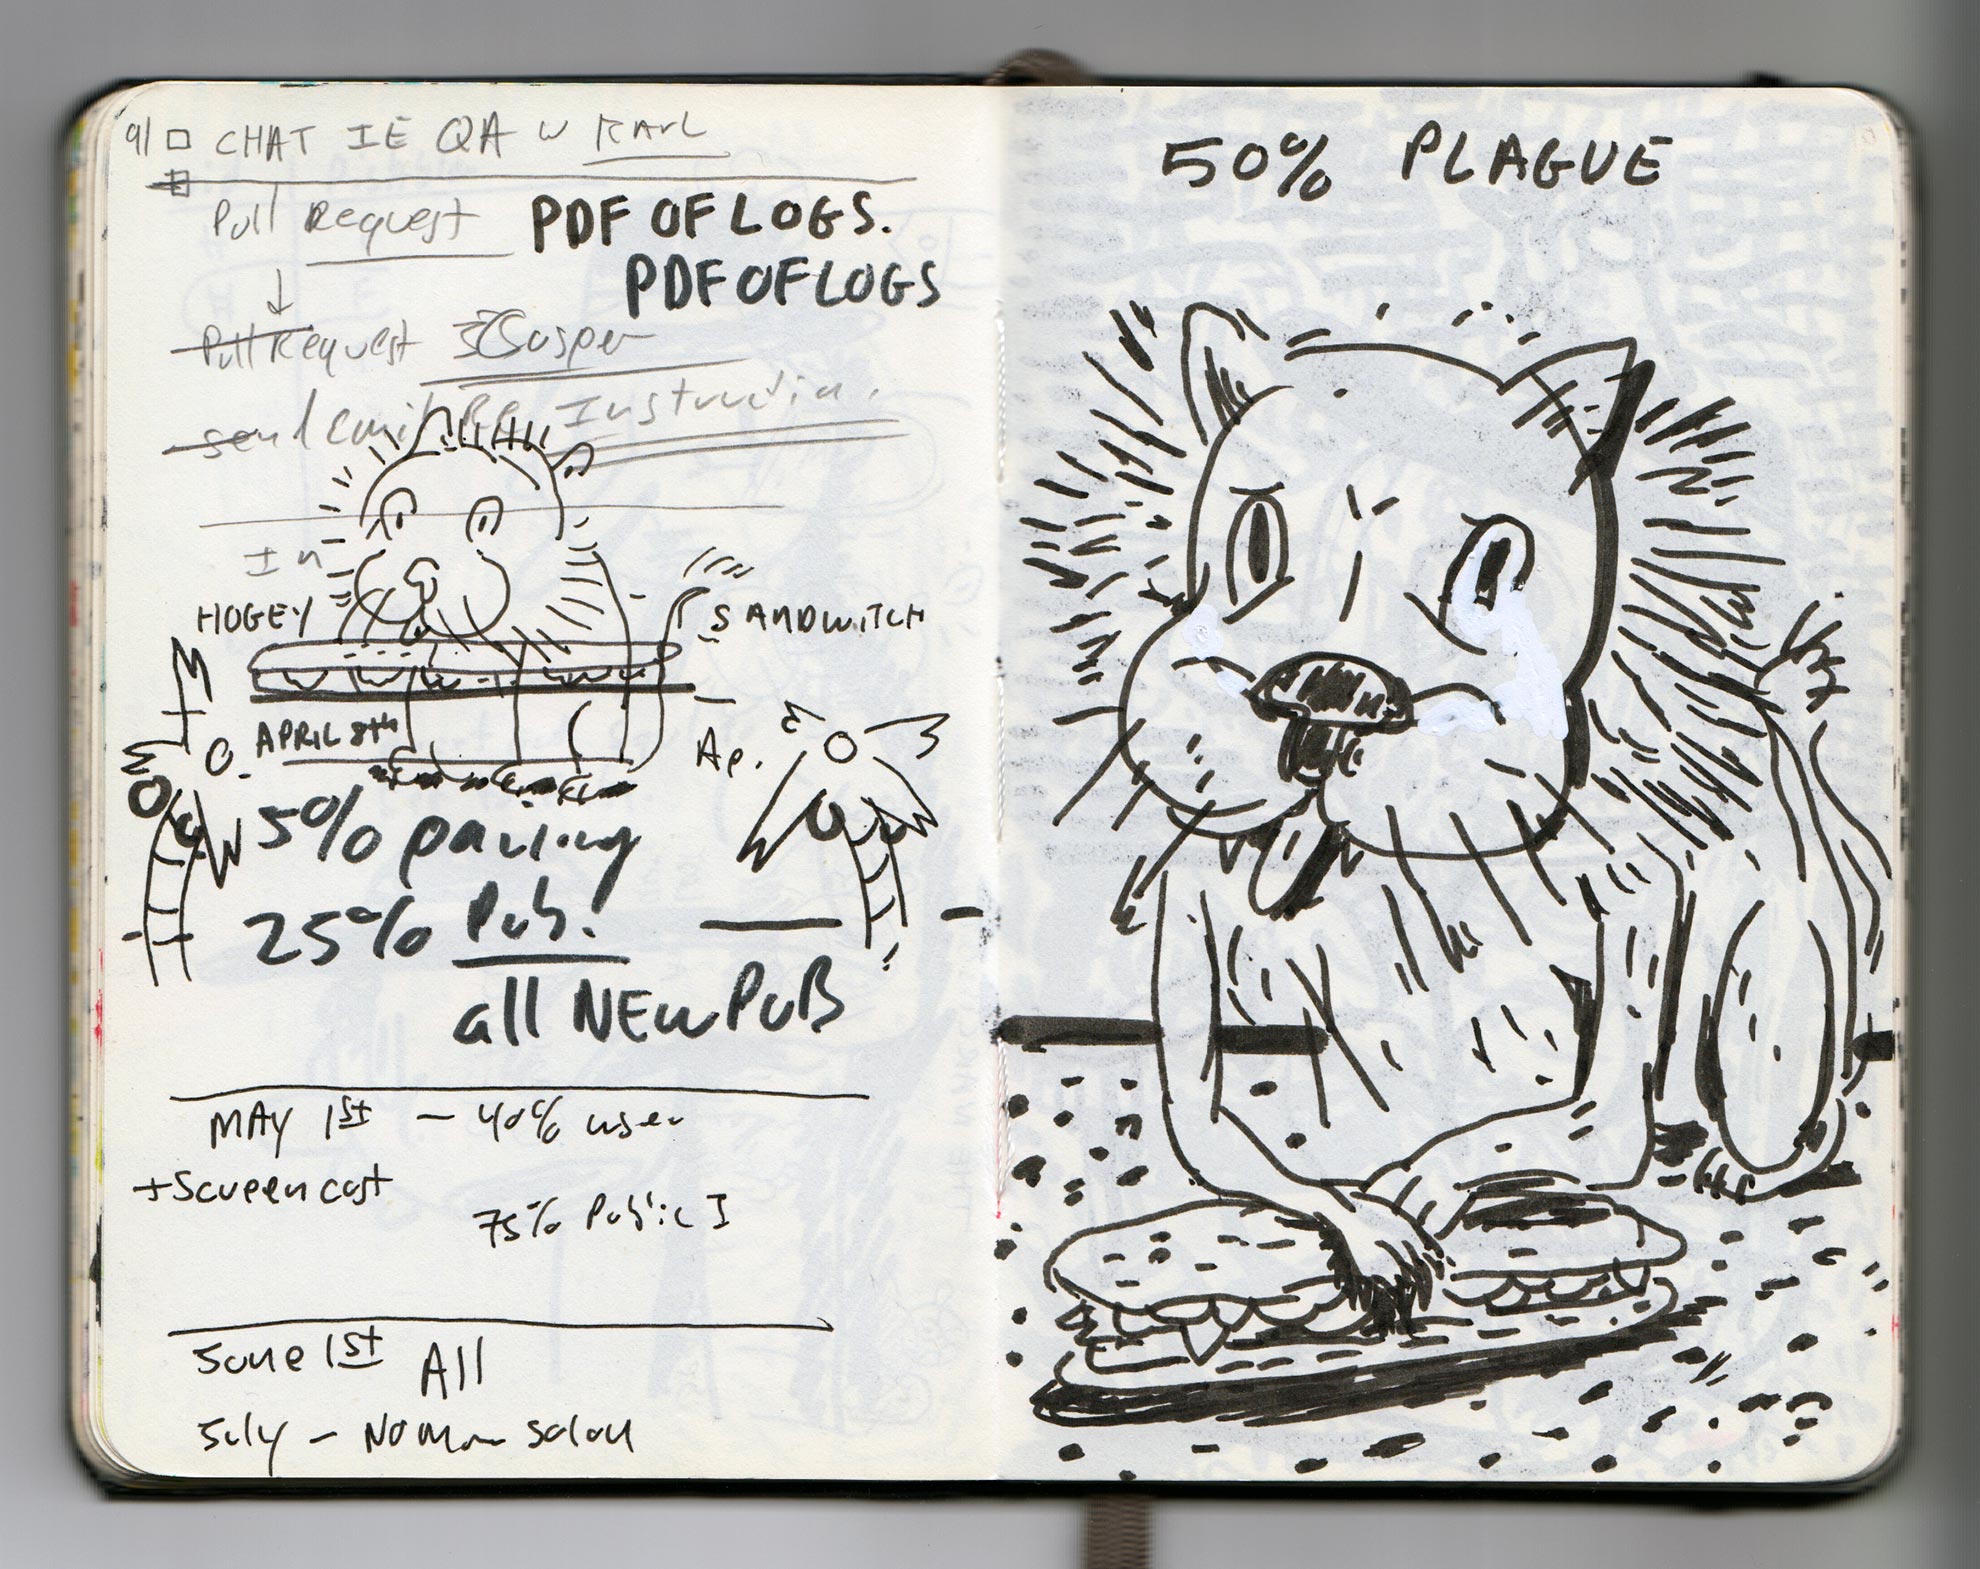 9/ CHAT IE QA W KARL
Pull Request PDF OF LOGS.
PDF OF LOGS
Pull Request
send email Re Instruction.
In
HOGEY SANDWITCH
APRIL 8th Ap.
5% paving
25% Pub.
all NEW PUB
MAY 1st – 40% user
+Screencast
75% Public I
June 1st All
July – No More
50% PLAGUE